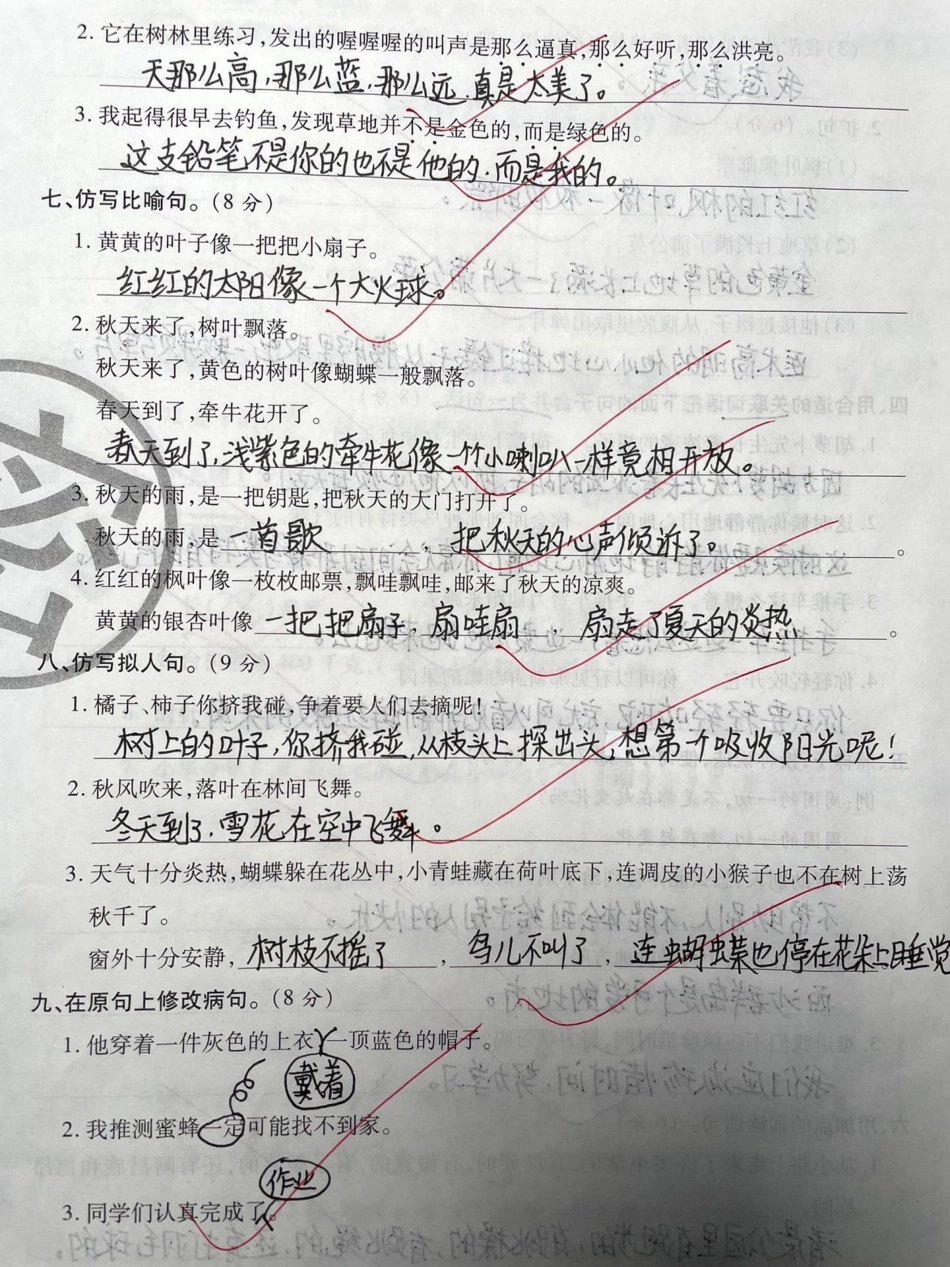 2. 它在树林里练习,发出的喔喔喔的叫声是那么逼真,那么好听,那么洪亮。
天那么高,那么蓝,那么远,真是太美了。
3. 我起得很早去钓鱼,发现草地并不是金色的,而是绿色的。
这支铅笔不是你的也不是他的,而是我的。
七、仿写比喻句。(8 分)
1. 黄黄的叶子像一把把小扇子。
红红的太阳像一个大火球。
2. 秋天来了,树叶飘落。
秋天来了,黄色的树叶像蝴蝶一般飘落。
春天到了,牵牛花开了。
春天到了,浅紫色的牵牛花像一个小喇叭一样竟相开放。
3. 秋天的雨,是一把钥匙,把秋天的大门打开了。
秋天的雨,是一首歌,把秋天的心声倾诉了。。
4. 红红的枫叶像一枚枚邮票,飘哇飘哇,邮来了秋天的凉爽。
黄黄的银杏叶像一把把扇子,扇哇扇,扇走了夏天的炎热。
八、仿写拟人句。(9 分)
1. 橘子、柿子你挤我碰,争着要人们去摘呢!
树上的叶子,你挤我碰,从枝头上探出头,想第一个吸收阳光呢!
2. 秋风吹来,落叶在林间飞舞。
冬天到了,雪花在空中飞舞。
3. 天气十分炎热,蝴蝶躲在花丛中,小青蛙藏在荷叶底下,连调皮的小猴子也不在树上荡
秋千了。
窗外十分安静,树枝不摇了,鸟儿不叫了,连蝴蝶也停在花朵上睡觉
九、在原句上修改病句。(8 分)
1. 他穿着一件灰色的上衣一顶蓝色的帽子。
戴着
2. 我推测蜜蜂一定可能找不到家。
作业
3. 同学们认真完成了。